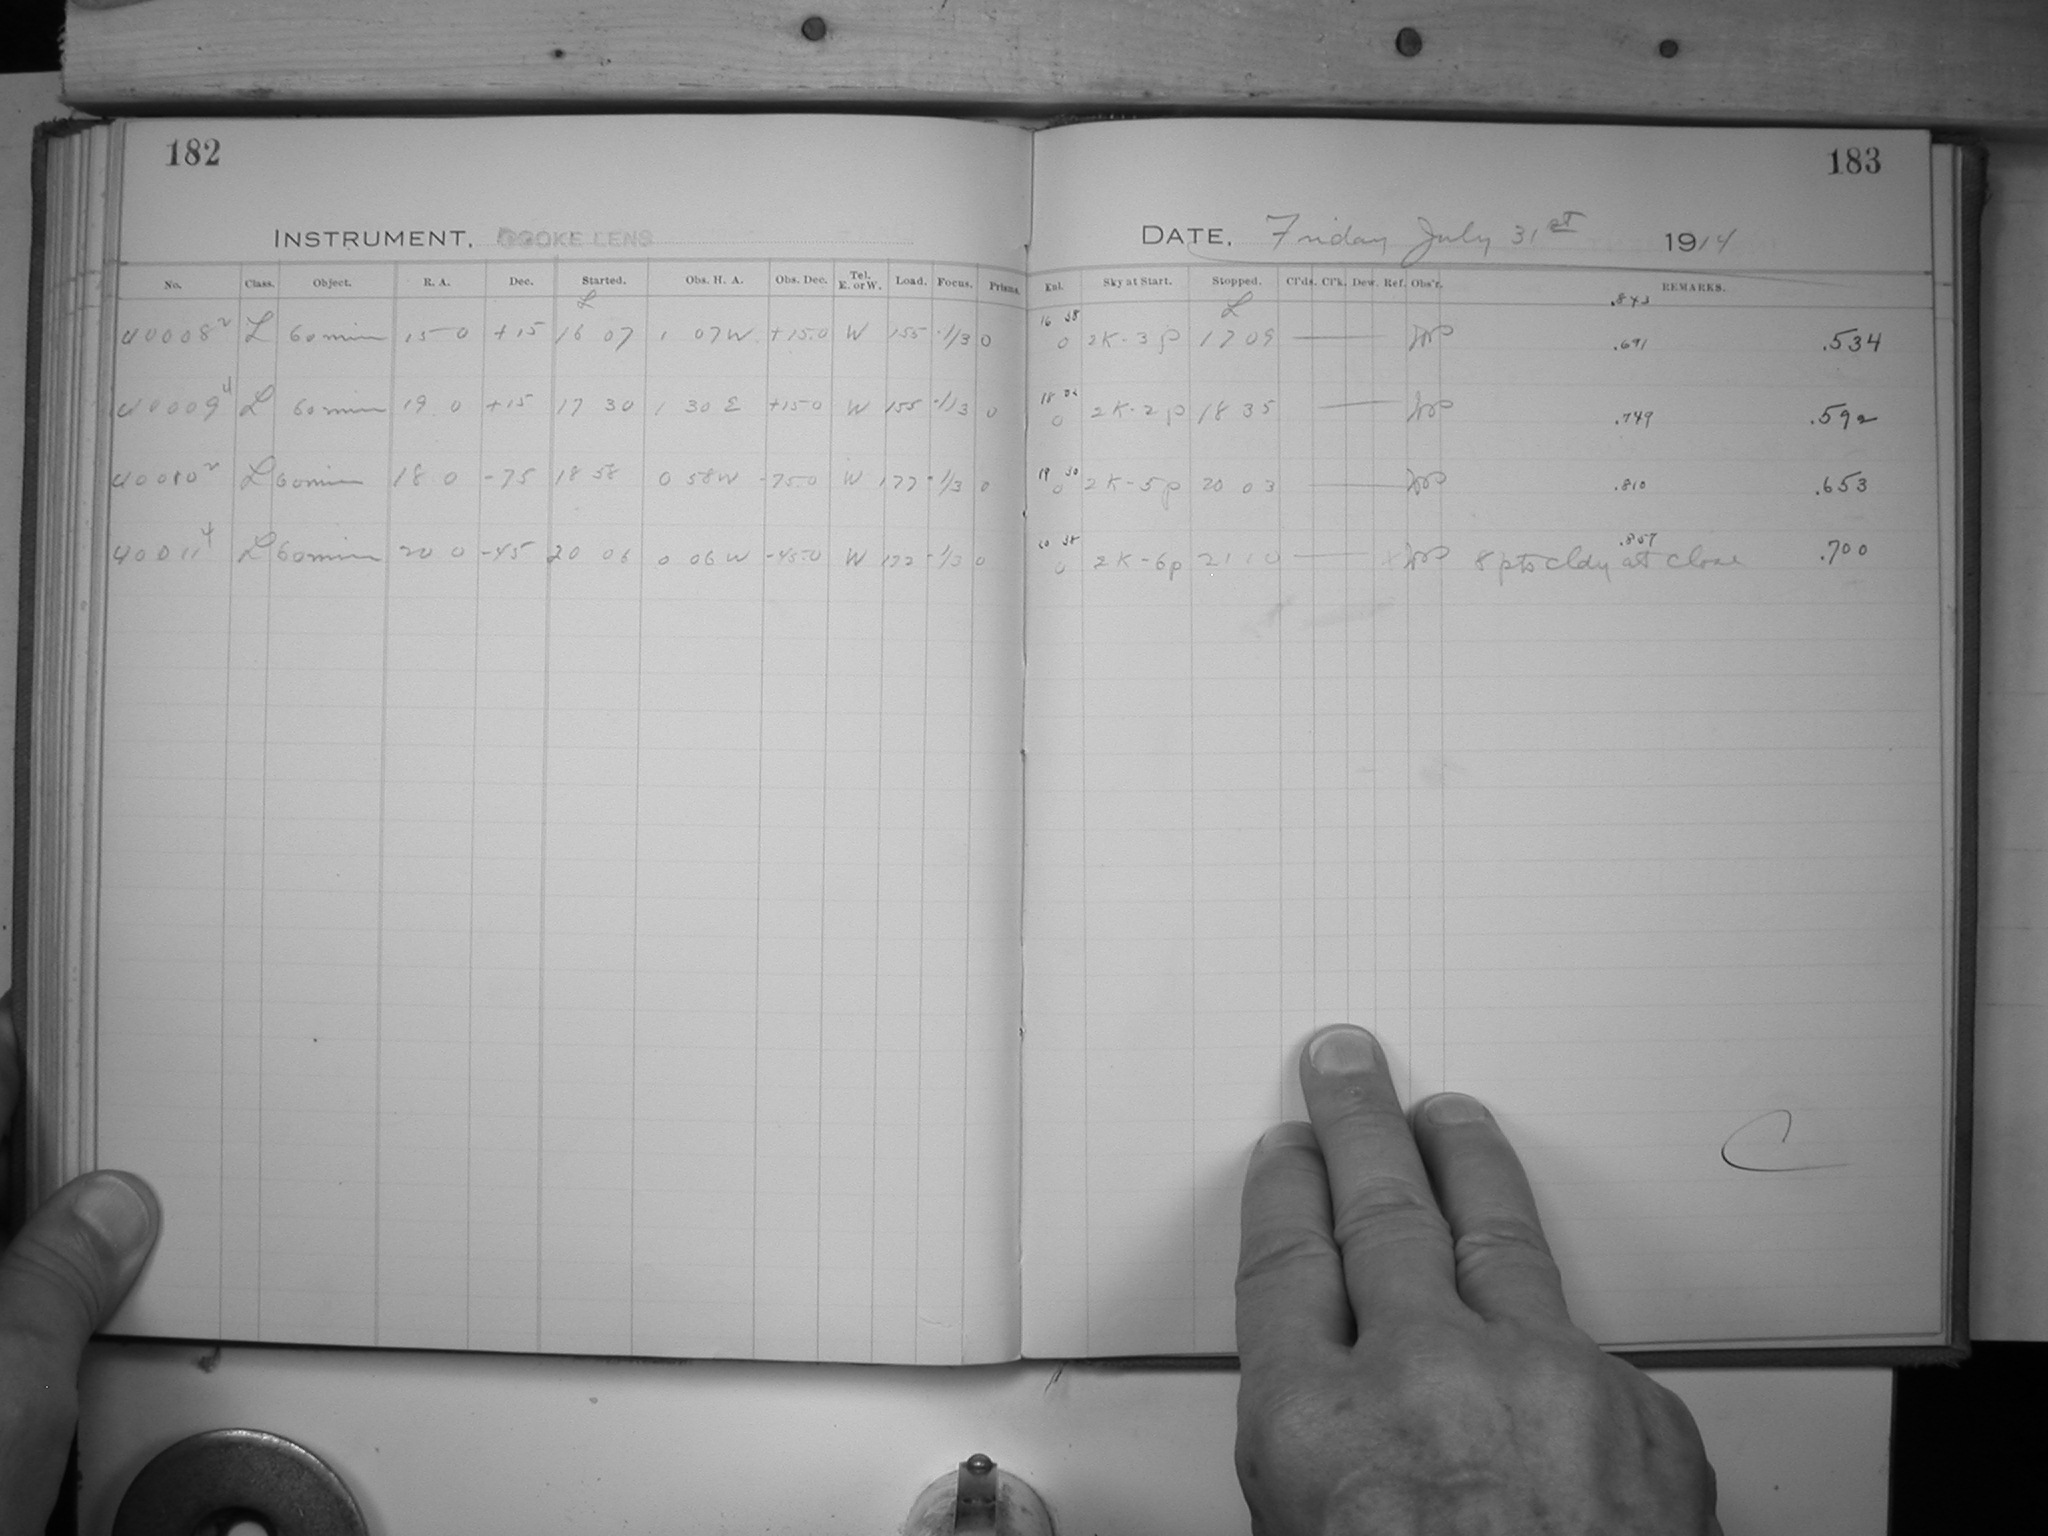 182
183
INSTRUMENT, COOKE LENS
DATE, Friday July 31st 1914
No. Class. Object. R. A. Dec. Started. Obs. H. A. Obs. Dec. Tel. E. or W. Load. Focus. Prisms. Enl. Sky at Start. Stopped. Cl'ds. Cl'k. Dew. Ref. Obs'r. REMARKS.
L L .843
40008 2 L 60 min 15 0 +15 16 07 1 07 W +15.0 W 155 -1/3 0 16 38 0 2K-3p 17 09 .691 .534
40009 4 L 60 min 19 0 +15 17 30 1 30 E +15.0 W 155 -1/3 0 18 02 0 2K-2p 18 35 .749 .592
40010 2 L 60 min 18 0 -75 18 58 0 58 W -75.0 W 177 -1/3 0 19 30 0 2K-5p 20 03 .810 .653
40011 4 L 60 min 20 0 -45 20 06 0 06 W -45.0 W 177 -1/3 0 20 38 0 2K-6p 21 10 .857 8 pts cldy at close .700
C